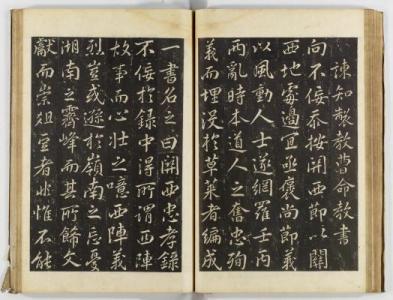 諫知製教曹命教書
向不佞忝按関西節以関
西地處邊宜亟褒尚節義
以風動人士遂網羅壬丙
兩亂時本道人之奮忠殉
義而埋没於草莱者編成
一書名之曰関西忠孝錄
不佞於録中得所謂西陣
故事而心壮之噫西陣義
烈豈或遜於嶺南之忘憂
湖南之霽峰而其所餙文
獻而崇俎豆者非惟不能